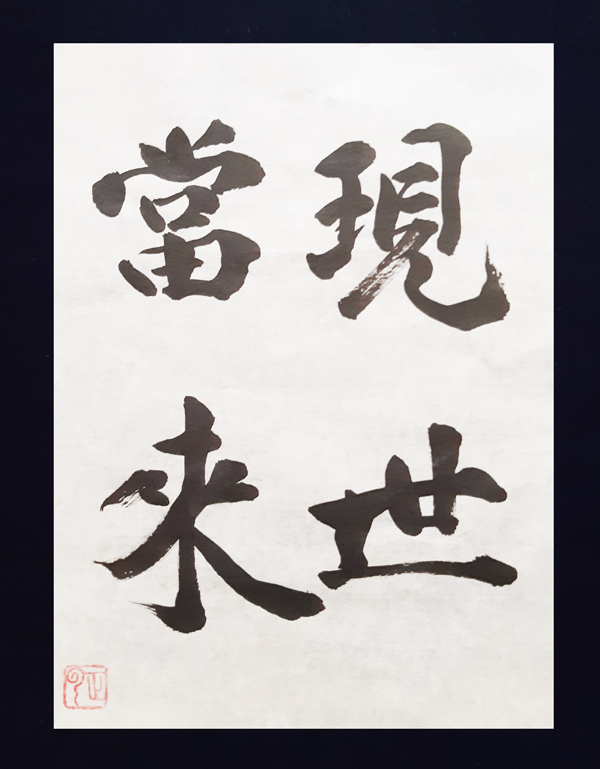 現世
當來